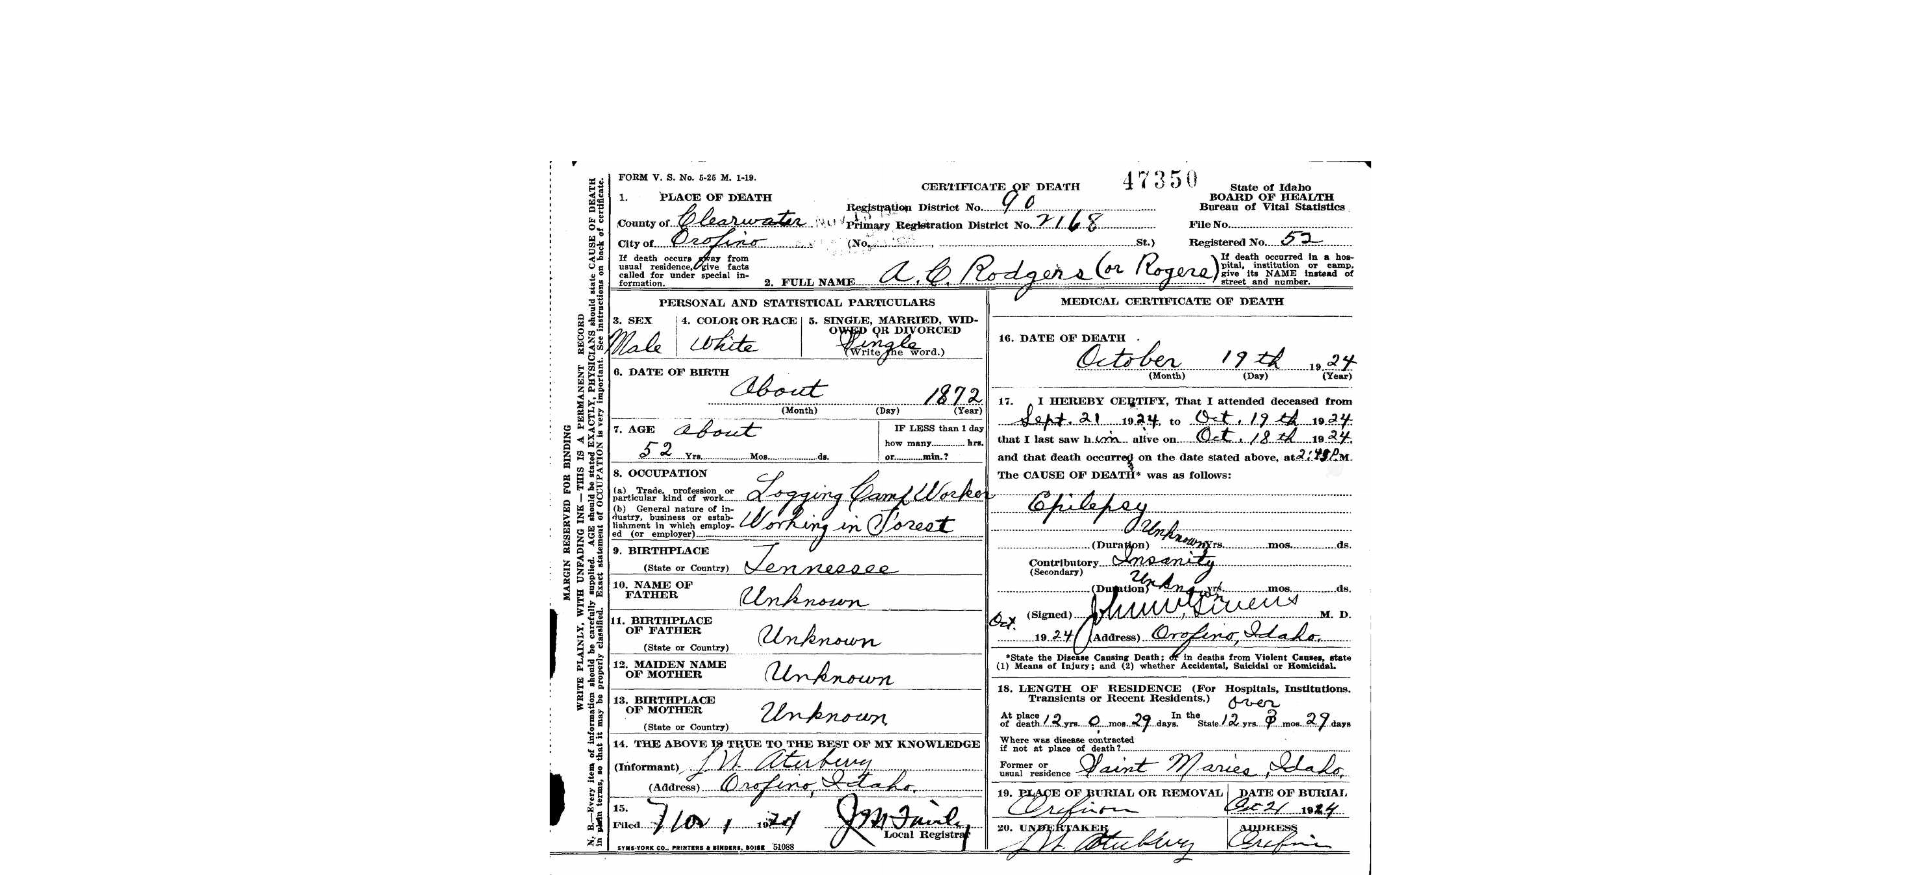 FORM V. S. No. 5-25 M. 1-19.
CERTIFICATE OF DEATH
47350
State of Idaho
BOARD OF HEALTH
Bureau of Vital Statistics
1. PLACE OF DEATH
County of Clearwater
City of Orofino
Registration District No. 90
Primary Registration District No. 2168
(No. St.)
File No.
Registered No. 52
If death occurs away from
usual residence, give facts
called for under special in-
formation.
2. FULL NAME A. C. Rodgers (or Rogers)
If death occurred in a hos-
pital, institution or camp,
give its NAME instead of
street and number.
MARGIN RESERVED FOR BINDING
WRITE PLAINLY, WITH UNFADING INK—THIS IS A PERMANENT RECORD
N. B.—Every item of information should be carefully supplied. AGE should be stated EXACTLY, PHYSICIANS should state CAUSE OF DEATH
in plain terms, so that it may be properly classified. Exact statement of OCCUPATION is very important. See instructions on back of certificate.
PERSONAL AND STATISTICAL PARTICULARS
3. SEX
Male
4. COLOR OR RACE
White
5. SINGLE, MARRIED, WID-
OWED OR DIVORCED
Single
(Write the word.)
6. DATE OF BIRTH
About 1872
(Month) (Day) (Year)
7. AGE about
52 Yrs. Mos. ds.
IF LESS than 1 day
how many hrs.
or min.?
8. OCCUPATION
(a) Trade, profession or
particular kind of work Logging Camp Worker
(b) General nature of in-
dustry, business or estab-
lishment in which employ-
ed (or employer) Working in Forest
9. BIRTHPLACE
(State or Country) Tennessee
10. NAME OF
FATHER Unknown
11. BIRTHPLACE
OF FATHER Unknown
(State or Country)
12. MAIDEN NAME
OF MOTHER Unknown
13. BIRTHPLACE
OF MOTHER Unknown
(State or Country)
14. THE ABOVE IS TRUE TO THE BEST OF MY KNOWLEDGE
(Informant)
(Address) Orofino, Idaho.
15.
Filed Nov 1 1924
Local Registrar
SYMS-YORK CO., PRINTERS & BINDERS, BOISE 51088
MEDICAL CERTIFICATE OF DEATH
16. DATE OF DEATH
October 19th 1924
(Month) (Day) (Year)
17. I HEREBY CERTIFY, That I attended deceased from
Sept. 21 1924, to Oct. 19th 1924
that I last saw him alive on Oct. 18th 1924
and that death occurred on the date stated above, at 2:48 P.M.
The CAUSE OF DEATH* was as follows:
Epilepsy
Unknown
(Duration) yrs. mos. ds.
Contributory Insanity
(Secondary)
Unknown
(Duration) yrs. mos. ds.
(Signed) M. D.
Oct. 1924 (Address) Orofino, Idaho.
*State the Disease Causing Death; or in deaths from Violent Causes, state
(1) Means of Injury; and (2) whether Accidental, Suicidal or Homicidal.
18. LENGTH OF RESIDENCE (For Hospitals, Institutions,
Transients or Recent Residents.) over
At place of death 12 yrs. 0 mos. 29 days. In the State 12 yrs. mos. 29 days
Where was disease contracted
if not at place of death?
Former or
usual residence Saint Maries, Idaho,
19. PLACE OF BURIAL OR REMOVAL
DATE OF BURIAL
Oct 21 1924
20. UNDERTAKER
ADDRESS